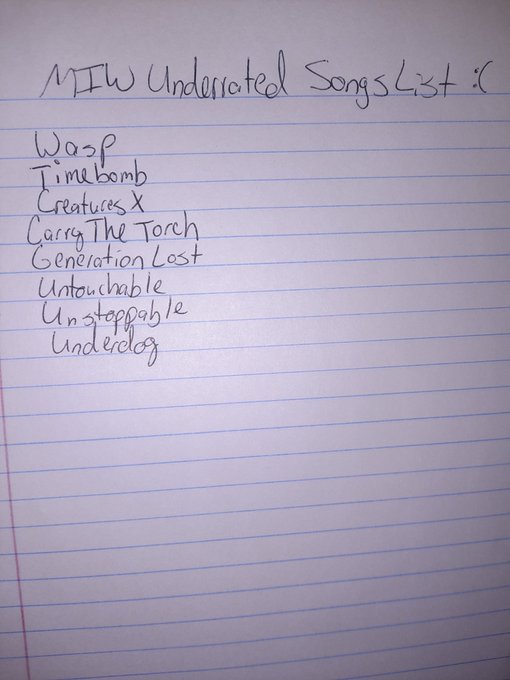 MIW Underrated Songs List :(
Wasp
Timebomb
Creatures X
Carry The Torch
Generation Lost
Untouchable
Unstoppable
Underdog